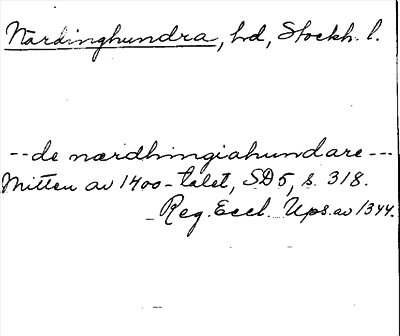 Närdinghundra, hd, Stockh. l.
-- de nærdhingiahundare ---
Mitten av 1400-talet, SD 5, s. 318.
_ Reg. Eccl. Ups. av 1344.